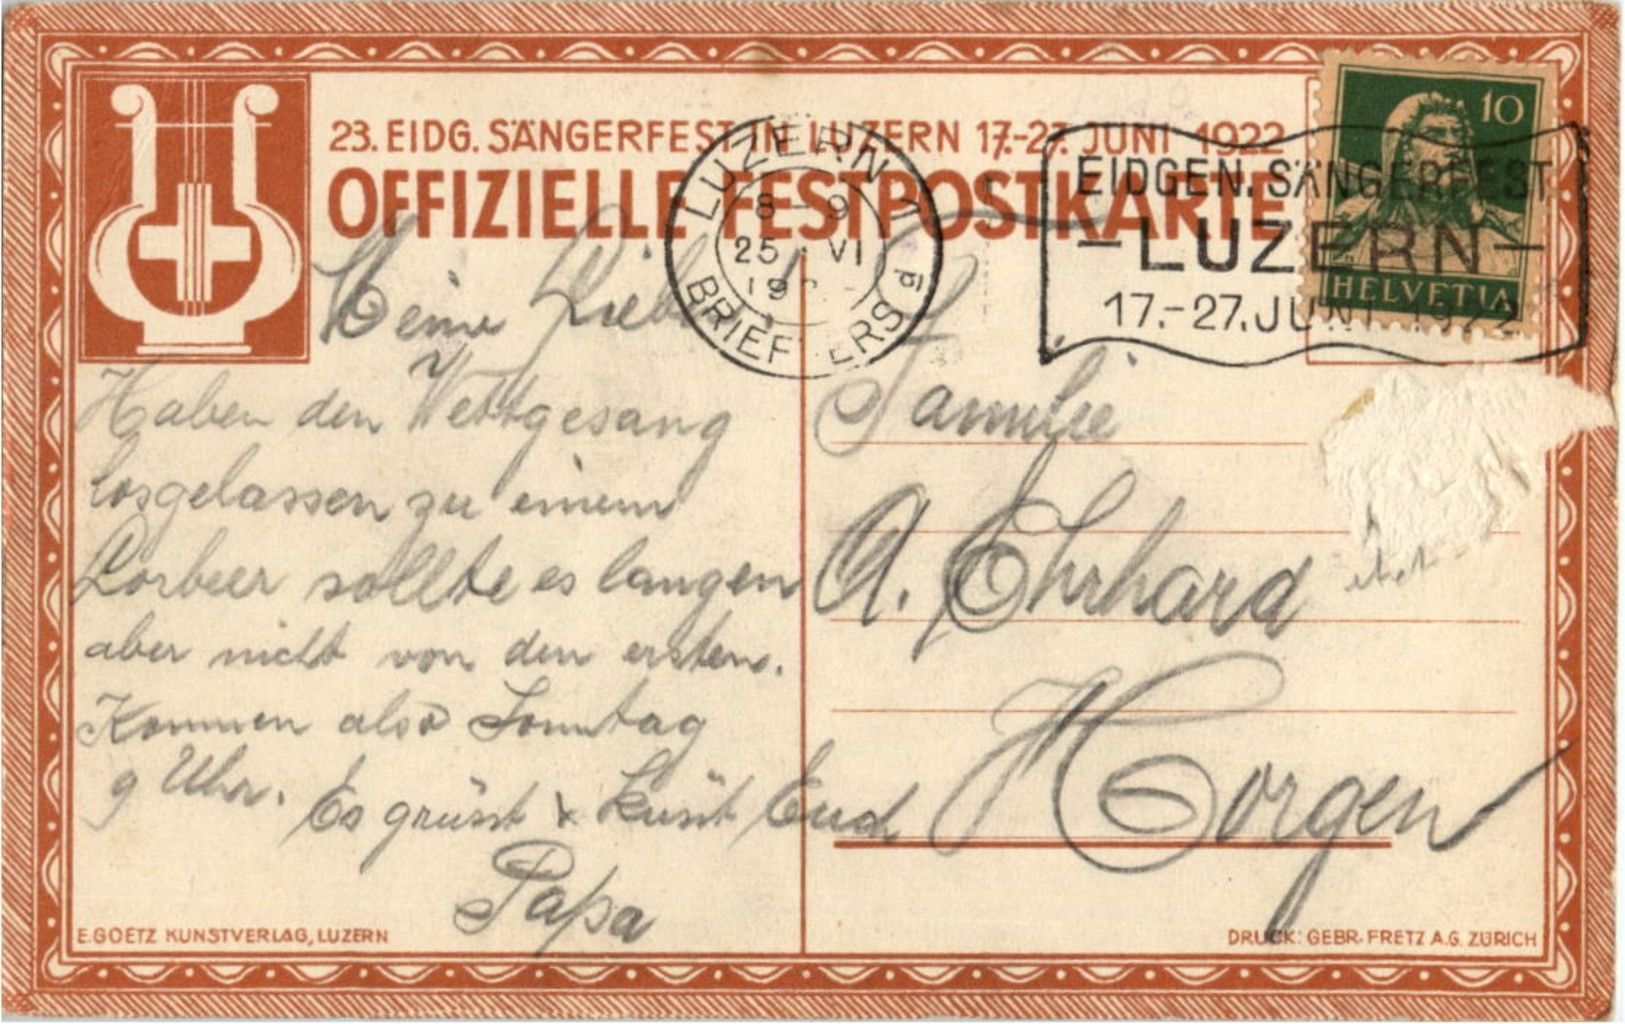 23. EIDG. SÄNGERFEST IN LUZERN 17.-27. JUNI 1922
OFFIZIELLE FESTPOSTKARTE
LUZERN 1
8-9
25. VI
19
BRIEF ERS
EIDGEN. SÄNGERFEST
-LUZERN-
17.-27. JUNI 1922
10
HELVETIA
Meine Lieben
Haben den Wettgesang
losgelassen zu einem
Lorbeer sollte es langen
aber nicht von den ersten.
Kommen also Sonntag
9 Uhr.
Es grüsst & küsst Euch
Papa
Familie
A. Ehrhard
Horgen
E. GOETZ KUNSTVERLAG, LUZERN
DRUCK: GEBR. FRETZ A.G. ZÜRICH